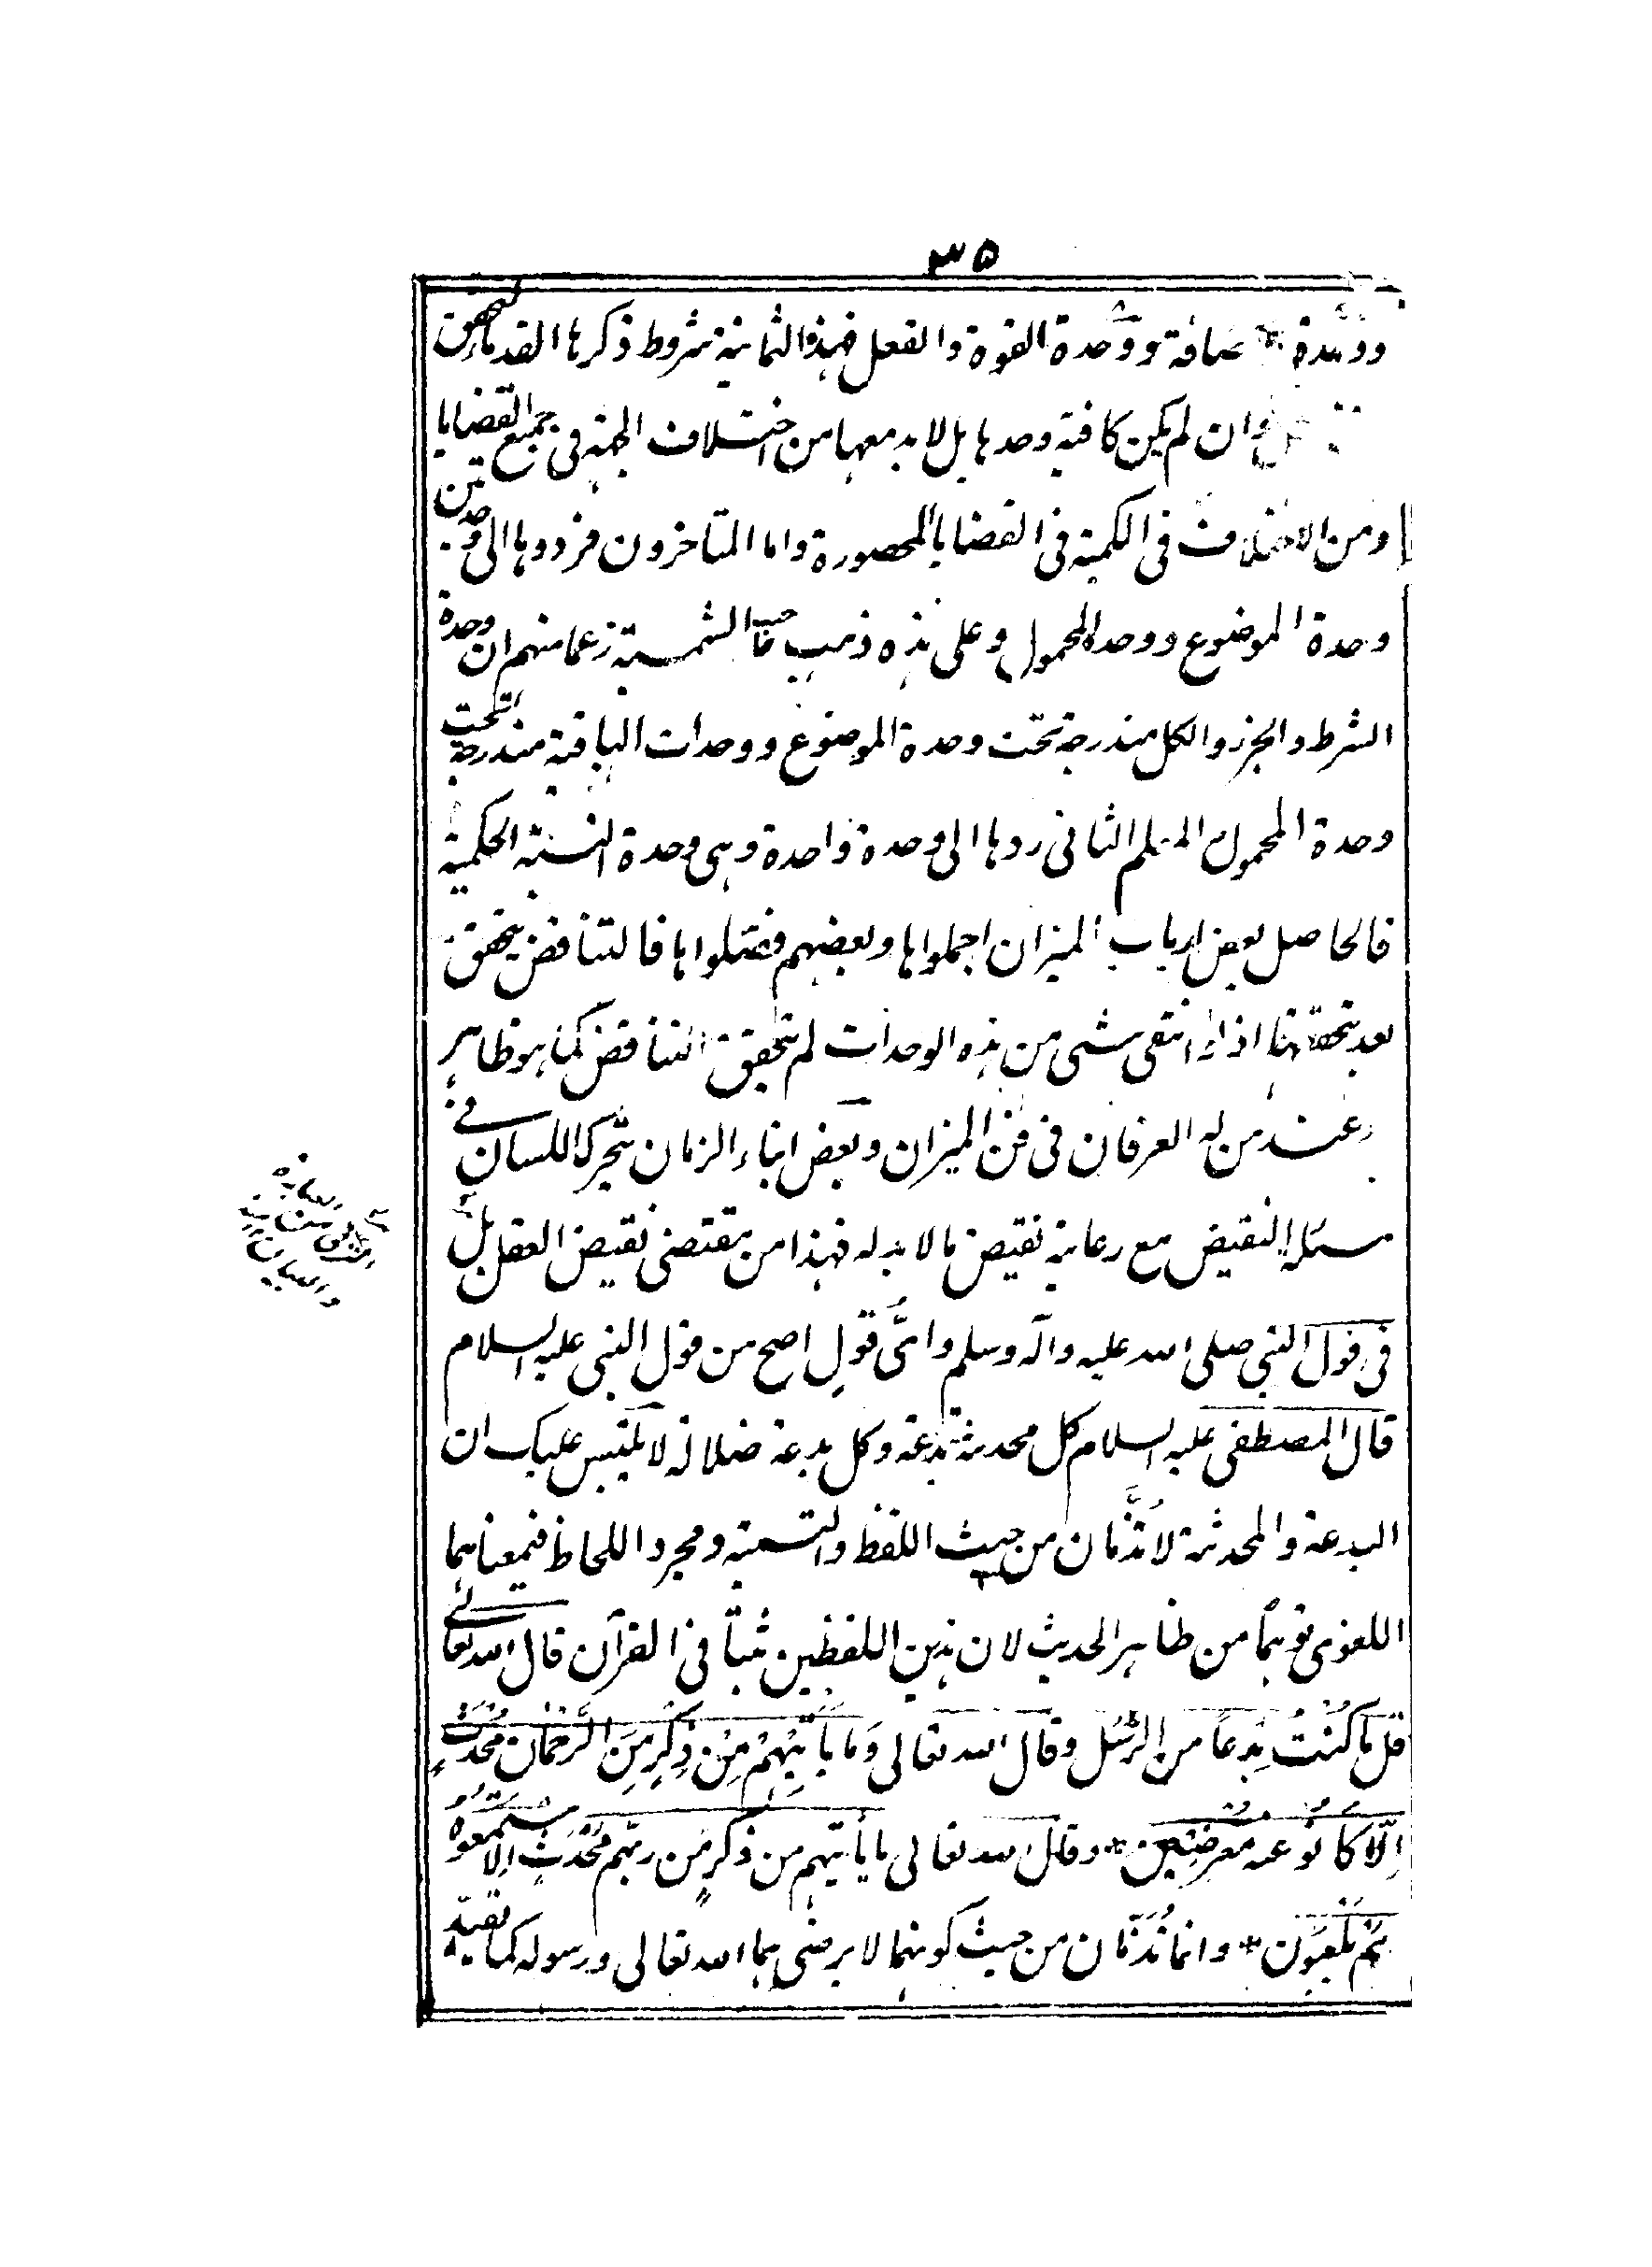 ۳۵
ووحدة الاضافة ووحدة القوة والفعل فهذه الثمانية شروط ذكرها القدماء
وان لم يكن كافية وحدها بل لا بد معها من اختلاف الجهة فى جميع القضايا
ومن الاختلاف فى الكمية فى القضايا المحصورة واما المتاخرون فردوها الى وحدتين
وحدة الموضوع ووحدة المحمول وعلى هذه ذهب صاحب الشمسية زعما منهم ان وحدة
الشرط والجزء والكل مندرجة تحت وحدة الموضوع ووحدات الباقية مندرجة تحت
وحدة المحمول المعلم الثانى ردها الى وحدة واحدة وهى وحدة النسبة الحكمية
فالحاصل بعض ارباب الميزان اجملوا ها وبعضهم فصلوا ها فالتناقض يتحقق
بعد تحققها اذ انتفى شى من هذه الوحدات لم يتحقق التناقض كما هو ظاهر
عند من له العرفان فى فن الميزان وبعض ابناء الزمان يتحرك اللسان فے
مسئلة النقيض مع رعاية نقيض مالا بد له فهذا من مقتضى نقيض العقل بل
فى قول النبى صلى الله عليه وآله وسلم واىُّ قولٍ اصح من قول النبى عليه السلام
قال المصطفى عليه السلام كل محدثة بدعة وكل بدعة ضلالة لا يلتبس عليك ان
البدعة والمحدثة لا تُذَمَّان من حيث اللفظ والتسمية ومجرد اللحاظ فيمعناهما
اللغوى توهماً من ظاهر الحديث لان هذين اللفظين ثبتا فى القرآن قال الله تعالے
قل ما كُنْتُ بِدْعاً من الرُّسُل وقال الله تعالى وَمَا يَأْتِيْهِمْ مِنْ ذِكْرٍ مِنَ الرَّحْمٰان مُحْدَثٍ
اِلَّا كَانُوْ عنه مُعْرِضِيْن * وقال الله تعالى ما يأتيهم من ذكرٍ من ربهم مُحْدَثٍ اِلا اسْتَمَعُوْهُ
هُمْ يَلْعَبُوْن * وانما تُذَمَّان من حيث كونهما لا يرضى بهما الله تعالى ورسوله كما